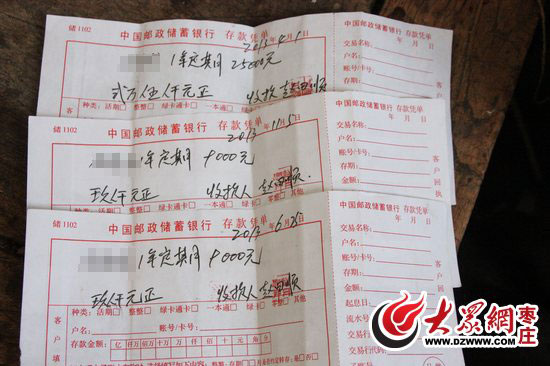 储1102
中国邮政储蓄银行 存款凭单
2013年4月1日
1年定期 25000元
贰万伍仟元正 收款人
种类:活期□ 整整□ 绿卡通卡□ 一本通□ 绿卡
中国邮政储蓄银行 存款凭单
年 月 日
交易名称:
户名:
账号/卡号:
存期:
金额:
储1102
中国邮政储蓄银行 存款凭单
2013年11月5日
1年定期 9000元
玖仟元正 收款人
种类:活期□ 整整□ 绿卡通卡□ 一本通□ 零整□ 其他
中国邮政储蓄银行 存款凭单
年 月 日
交易名称:
户名:
账号/卡号:
存期:
金额:
回
执
储1102
中国邮政储蓄银行 存款凭单
2013年6月28日
1年定期 9000元
玖仟元正 收款人
客
户
填
种类:活期□ 整整□ 绿卡通卡□ 一本通□ 零整□ 其他
户名: 账号/卡号:
存款金额: 亿 仟万 佰万 十万 万 仟 佰 十 元 角 分
中国邮政储蓄银行 存款凭单
年 月 日
交易名称:
户名:
账号/卡号:
存期:
金额:
起息日:
流水号
交易行
交易行代码:
客
户
回
大众网 枣庄
www.dzwww.com